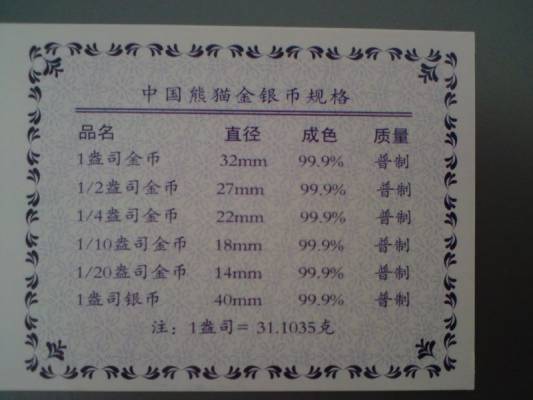 中国熊猫金银币规格
品名 直径 成色 质量
1盎司金币 32mm 99.9% 普制
1/2盎司金币 27mm 99.9% 普制
1/4盎司金币 22mm 99.9% 普制
1/10盎司金币 18mm 99.9% 普制
1/20盎司金币 14mm 99.9% 普制
1盎司银币 40mm 99.9% 普制
注：1盎司= 31.1035克